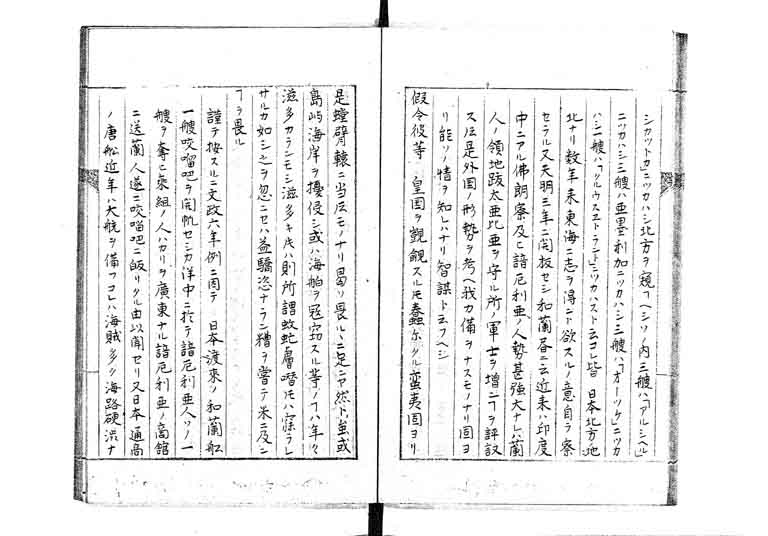 シカットカ」ニツカハシ北方ヲ窺フヘシソノ内三艘ハ「アルシヘル」
ニツカハシ三艘ハ亜墨利加ニツカハシ三艘ハ「オーツケ」ニツカ
ハシ一艘ハ「クルウスエトラント」ニツカハスト云コレ皆日本北方ノ地
北ナリ数年来東海ニ志ヲ得ント欲スルノ意自ラ察
セラル又天明三年ニ開板セシ和蘭暦ニ云近来ハ印度
中ニアル佛朗察及ヒ諳厄利亜ノ人勢甚強大ナレハ蘭
人ノ領地跋太亜比亜ヲ守ル所ノ軍士ヲ増ニフヲ評議
ス氐是外国ノ形勢ヲ考ヘ我カ備ヲナスモノナリ固ヨ
リ能ソノ情ヲ知レハナリ智謀ト云フヘシ
假令彼等ノ皇国ヲ覬覦スルモ蠢尓タル蛮夷固ヨリ
是螳臂轅ニ当氐モノナリ曷ソ畏ルヽニ足ンヤ然トモ或
島嶼海岸ヲ擾侵シ或ハ海舶ヲ寇窃スル等ノフハ年々
滋多カランモシ滋多キ片ハ則所謂蚊虻膚噆モハ寐ラレ
サルカ如シ之ヲ忽ニセハ益驕恣ナラン糟ヲ嘗テ米ニ及ン
フヲ畏ル
謹テ按スルニ文政六年例ニ因テ日本渡来ノ和蘭船
一艘咬𠺕吧ヲ開帆セシカ洋中ニ於テ諳厄利亜人ソノ一
艘ヲ奪ヒ乗組ノ人ハカリヲ廣東ナル諳厄利亜ノ商館
ニ送蘭人遂ニ咬𠺕吧ニ皈リタル由以聞セリ又日本通商
ノ唐船近年ハ大砲ヲ備フコレハ海賊多ク海路硬渋ナ